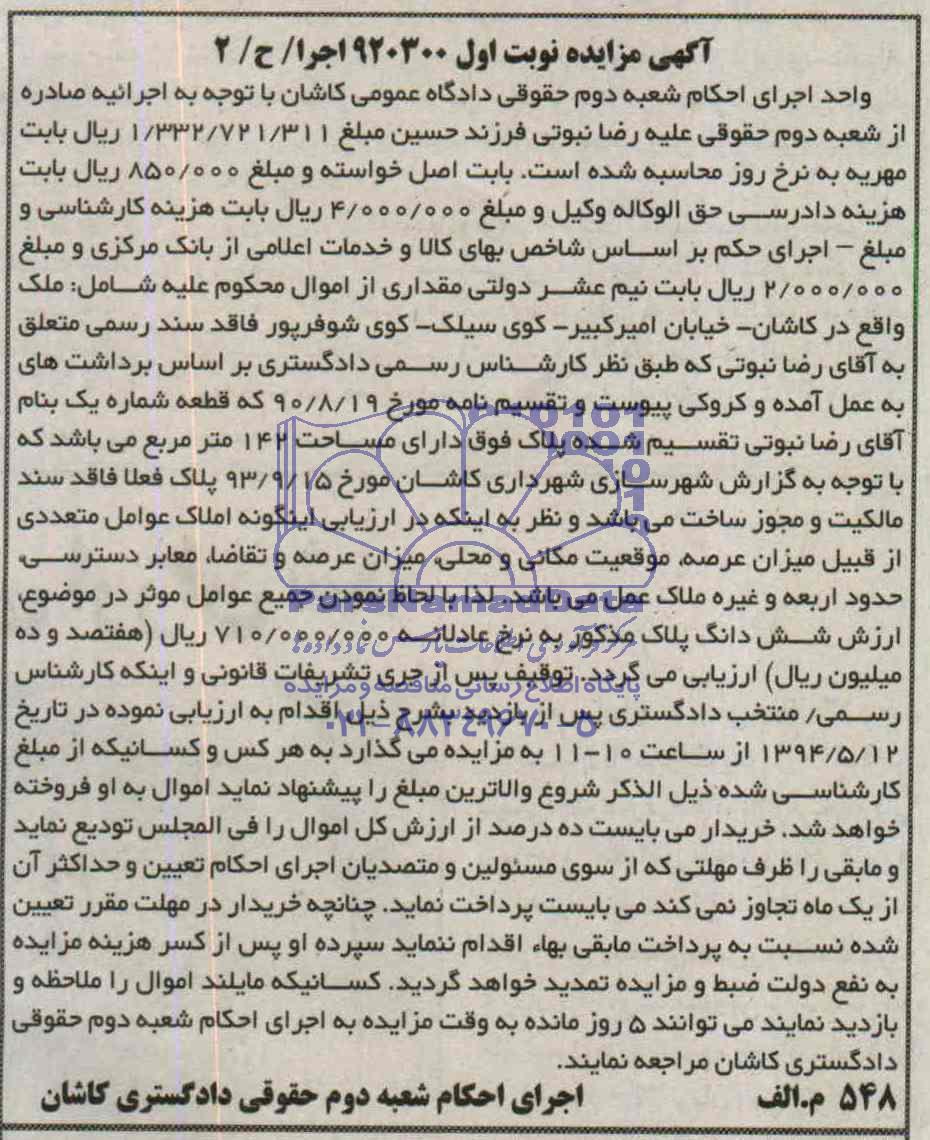 آگهی مزایده نوبت اول ۹۲۰۳۰۰ اجرا/ ح/ ۲
واحد اجرای احکام شعبه دوم حقوقی دادگاه عمومی کاشان با توجه به اجرائیه صادره
از شعبه دوم حقوقی علیه رضا نبوتی فرزند حسین مبلغ ۱/۳۳۲/۷۲۱/۳۱۱ ریال بابت
مهریه به نرخ روز محاسبه شده است. بابت اصل خواسته و مبلغ ۸۵۰/۰۰۰ ریال بابت
هزینه دادرسی حق الوکاله وکیل و مبلغ ۴/۰۰۰/۰۰۰ ریال بابت هزینه کارشناسی و
مبلغ – اجرای حکم بر اساس شاخص بهای کالا و خدمات اعلامی از بانک مرکزی و مبلغ
۲/۰۰۰/۰۰۰ ریال بابت نیم عشر دولتی مقداری از اموال محکوم علیه شامل: ملک
واقع در کاشان- خیابان امیرکبیر- کوی سیلک- کوی شوفرپور فاقد سند رسمی متعلق
به آقای رضا نبوتی که طبق نظر کارشناس رسمی دادگستری بر اساس برداشت های
به عمل آمده و کروکی پیوست و تقسیم نامه مورخ ۹۰/۸/۱۹ که قطعه شماره یک بنام
آقای رضا نبوتی تقسیم شده پلاک فوق دارای مساحت ۱۴۲ متر مربع می باشد که
با توجه به گزارش شهرسازی شهرداری کاشان مورخ ۹۳/۹/۱۵ پلاک فعلا فاقد سند
مالکیت و مجوز ساخت می باشد و نظر به اینکه در ارزیابی اینگونه املاک عوامل متعددی
از قبیل میزان عرصه، موقعیت مکانی و محلی، میزان عرصه و تقاضا، معابر دسترسی،
حدود اربعه و غیره ملاک عمل می باشد. لذا با لحاظ نمودن جمیع عوامل موثر در موضوع،
ParsNamadData
ارزش شش دانگ پلاک مذکور به نرخ عادلانه ۷۱۰/۰۰۰/۰۰۰ ریال (هفتصد و ده
میلیون ریال) ارزیابی می گردد. توقیف پس از جری تشریفات قانونی و اینکه کارشناس
پایگاه اطلاع رسانی مناقصه و مزایده
رسمی/ منتخب دادگستری پس از بازدید بشرح ذیل اقدام به ارزیابی نموده در تاریخ
۰۲۱-۸۸۳۴۹۶۷۰-۵
۱۳۹۴/۵/۱۲ از ساعت ۱۰-۱۱ به مزایده می گذارد به هر کس و کسانیکه از مبلغ
کارشناسی شده ذیل الذکر شروع والاترین مبلغ را پیشنهاد نماید اموال به او فروخته
خواهد شد. خریدار می بایست ده درصد از ارزش کل اموال را فی المجلس تودیع نماید
و مابقی را ظرف مهلتی که از سوی مسئولین و متصدیان اجرای احکام تعیین و حداکثر آن
از یک ماه تجاوز نمی کند می بایست پرداخت نماید. چنانچه خریدار در مهلت مقرر تعیین
شده نسبت به پرداخت مابقی بهاء اقدام ننماید سپرده او پس از کسر هزینه مزایده
به نفع دولت ضبط و مزایده تمدید خواهد گردید. کسانیکه مایلند اموال را ملاحظه و
بازدید نمایند می توانند ۵ روز مانده به وقت مزایده به اجرای احکام شعبه دوم حقوقی
دادگستری کاشان مراجعه نمایند.
۵۴۸ م.الف اجرای احکام شعبه دوم حقوقی دادگستری کاشان